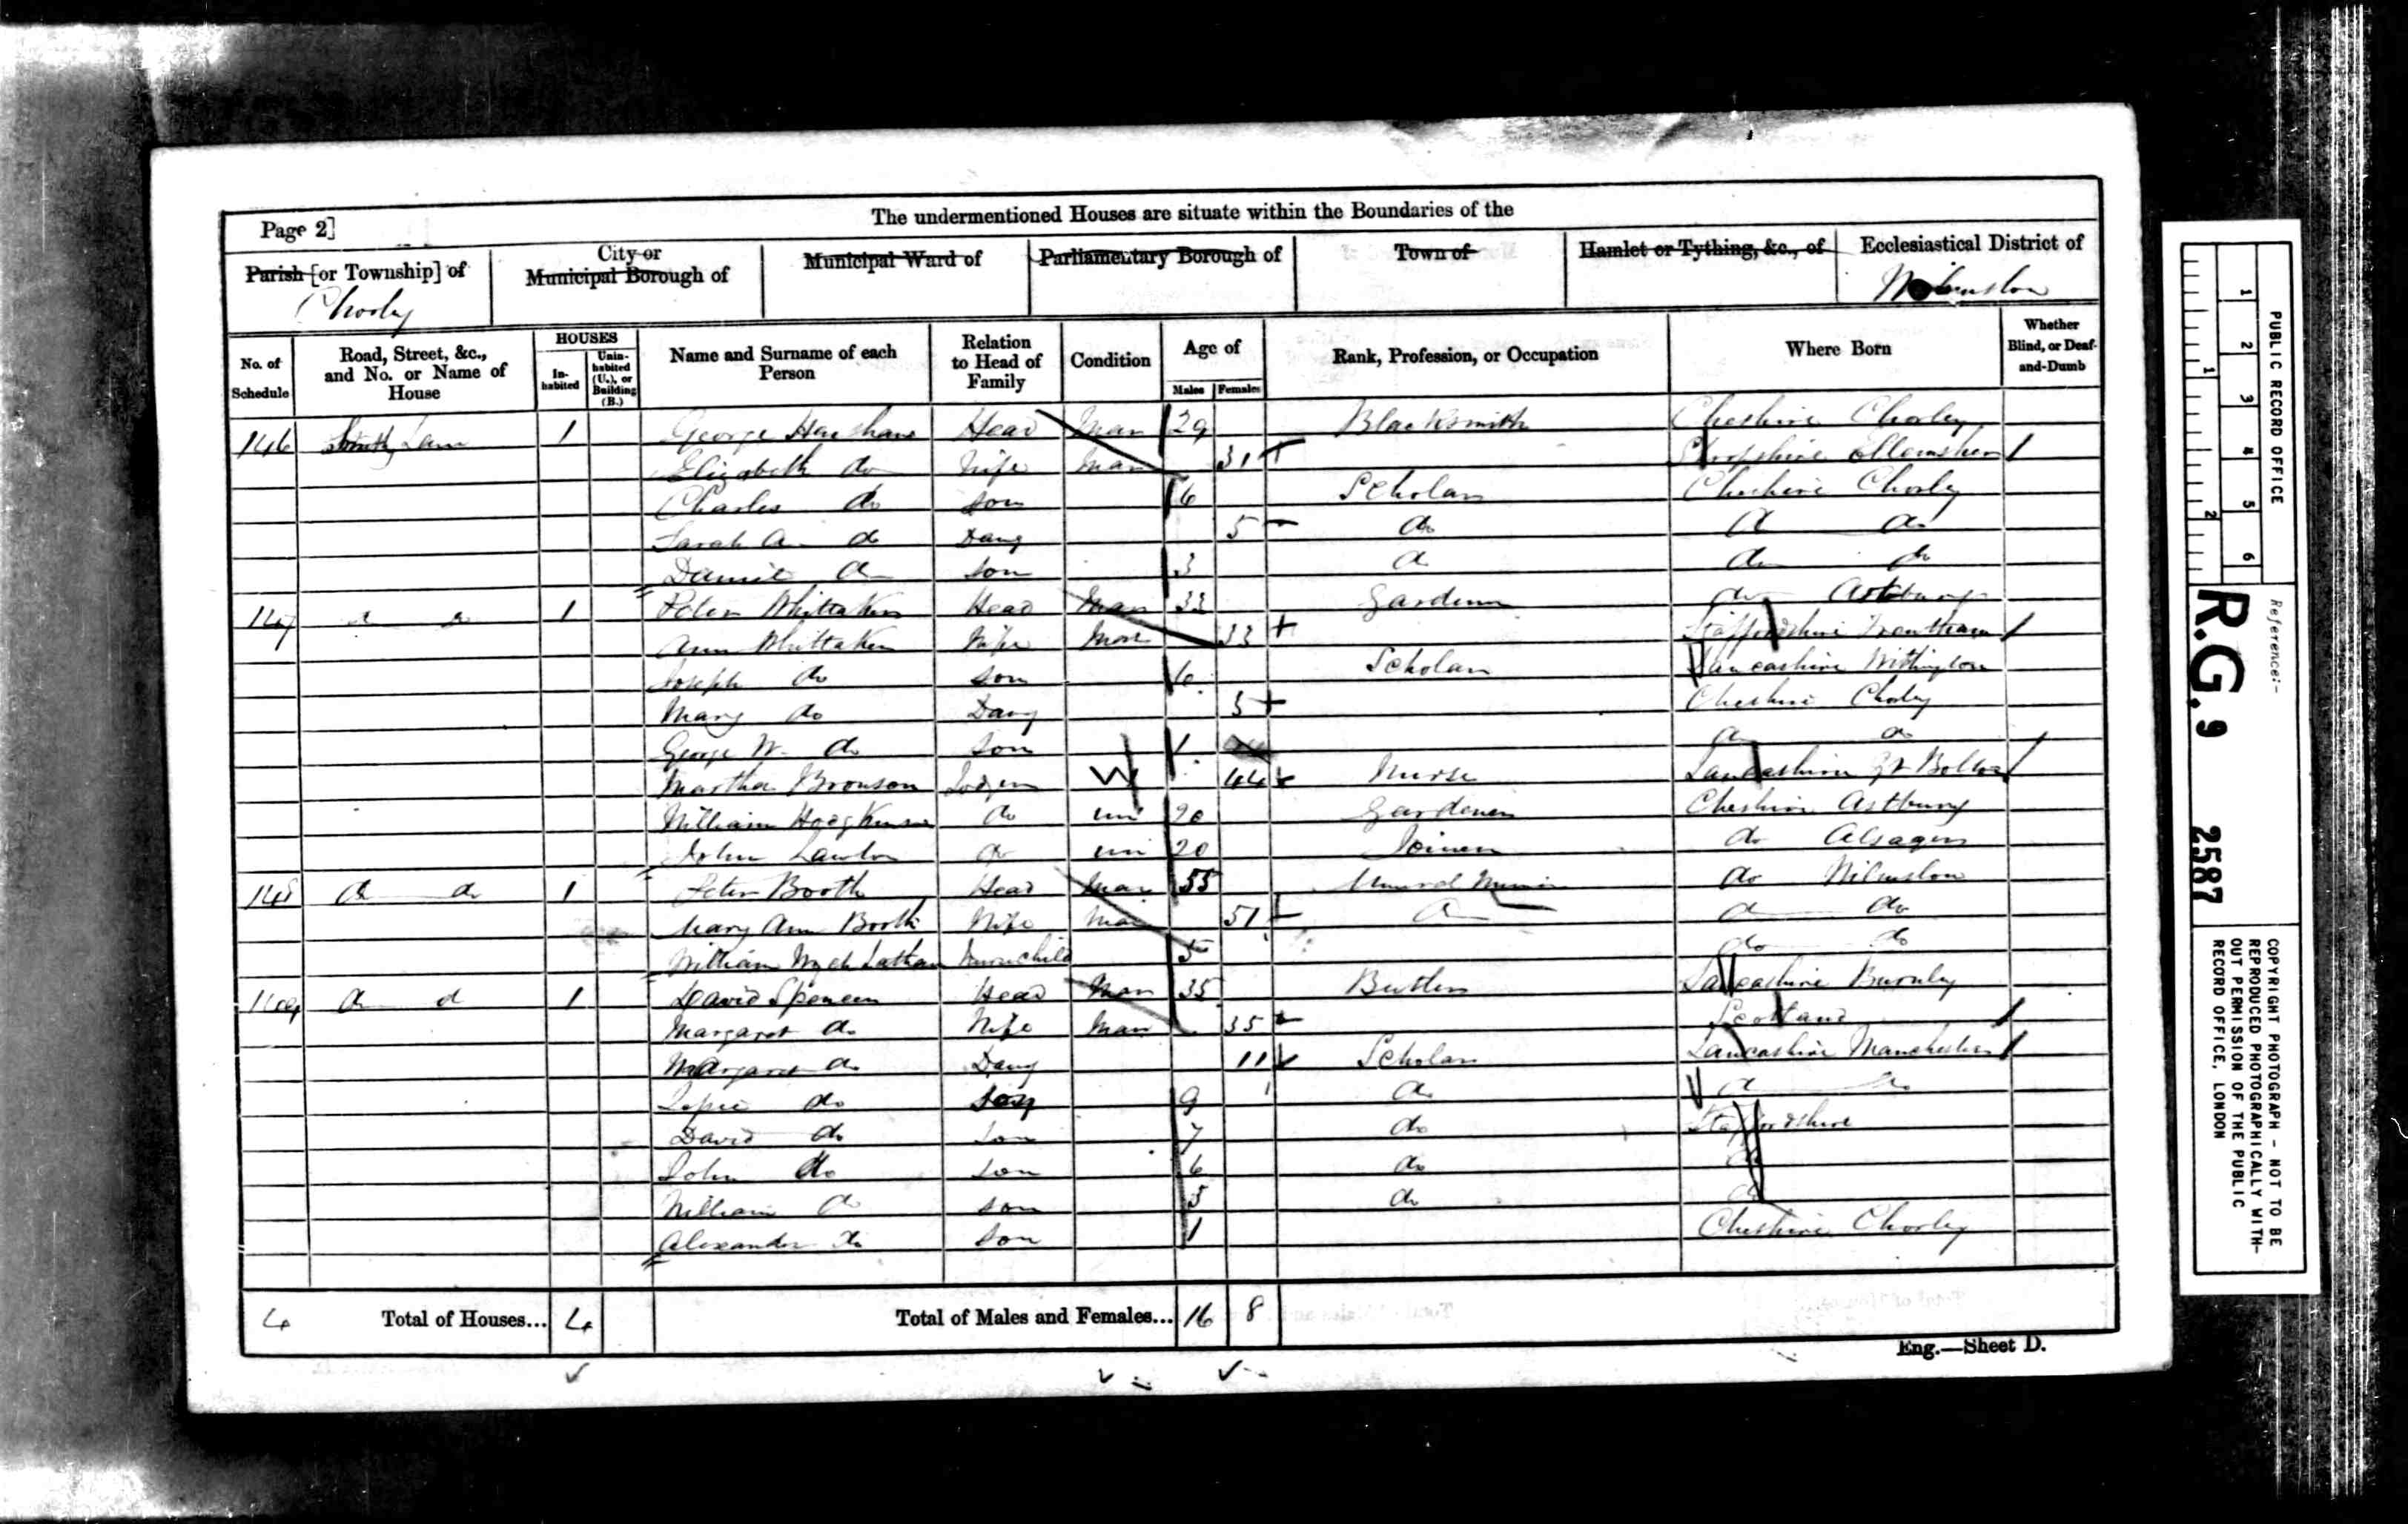 The undermentioned Houses are situate within the Boundaries of the
Page 2]
Parish [or Township] of
Chorley
City or
Municipal Borough of
Municipal Ward of
Parliamentary Borough of
Town of
Hamlet or Tything, &c., of
Ecclesiastical District of
No. of Schedule
Road, Street, &c., and No. or Name of House
HOUSES
In-habited
Unin-habited (U.), or Building (B.)
Name and Surname of each Person
Relation to Head of Family
Condition
Age of
Males Females
Rank, Profession, or Occupation
Where Born
Whether Blind, or Deaf-and-Dumb
146 Lane 1 George Head Mar 29 Blacksmith Cheshire Chorley
Elizabeth do Wife Mar 31 Shropshire
Charles do Son 6 Scholar Cheshire Chorley
Sarah A do Daug 5 do do do
Daniel do Son 3 do do do
147 do do 1 Peter Whittaker Head Mar 33 Gardener do Astbury
Ann Whittaker Wife Mar 33 Staffordshire Trentham
Joseph do Son 6 Scholar Lancashire Withington
Mary do Daug 3 Cheshire Chorley
George W. do Son 1 do do
Martha Bronson Lodger W 44 Nurse Lancashire Gt Bolton
William Hodgkinson do un 20 Gardener Cheshire Astbury
John Lawton do un 20 Joiner do Alsager
148 do do 1 Peter Booth Head Mar 55 do Wilmslow
Mary Ann Booth Wife Mar 51 do do do
William Latham Nursechild 5 do do
149 do do 1 David Spencer Head Mar 35 Butler Lancashire Burnley
Margaret do Wife Mar 35 Scotland
Margaret do Daug 11 Scholar Lancashire Manchester
do Son 9 do do do
David do Son 7 do Staffordshire
John do Son 6 do do
William do Son 5 do do
Alexander do Son 1 Cheshire Chorley
4 Total of Houses... 4 Total of Males and Females... 16 8
Eng.—Sheet D.
PUBLIC RECORD OFFICE
1 2 3 4 5 6
1 2
Reference:-
R.G. 9 2587
COPYRIGHT PHOTOGRAPH - NOT TO BE
REPRODUCED PHOTOGRAPHICALLY WITH-
OUT PERMISSION OF THE PUBLIC
RECORD OFFICE, LONDON